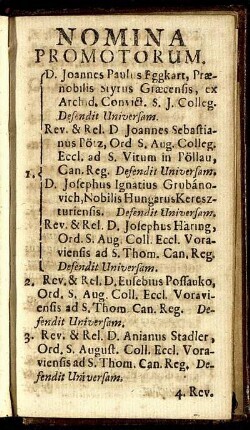 NOMINA
PROMOTORUM.
D. Joannes Paulus Eggkart, Præ-
nobilis Styrus Græcensis, ex
Archid. Convict. S. J. Colleg.
Defendit Universam.
Rev. & Rel. D Joannes Sebastia-
nus Pötz, Ord S. Aug. Colleg.
Eccl. ad S. Vitum in Pöllau,
1. Can. Reg. Defendit Universam.
D. Josephus Ignatius Grubáno-
vich, Nobilis Hungarus Keresz-
turiensis. Defendit Universam.
Rev. & Rel. D. Josephus Häring,
Ord. S. Aug. Coll. Eccl. Vora-
viensis ad S. Thom. Can, Reg
Defendit Universam.
2. Rev. & Rel. D, Eusebius Possauko,
Ord, S, Aug. Coll. Eccl. Voravi-
ensis ad S, Thom. Can, Reg. De-
fendit Universam.
3. Rev. & Rel. D. Anianus Stadler,
Ord, S. August. Coll. Eccl. Vora-
viensis ad S. Thom. Can, Reg. De-
fendit Universam.
4. Rev.